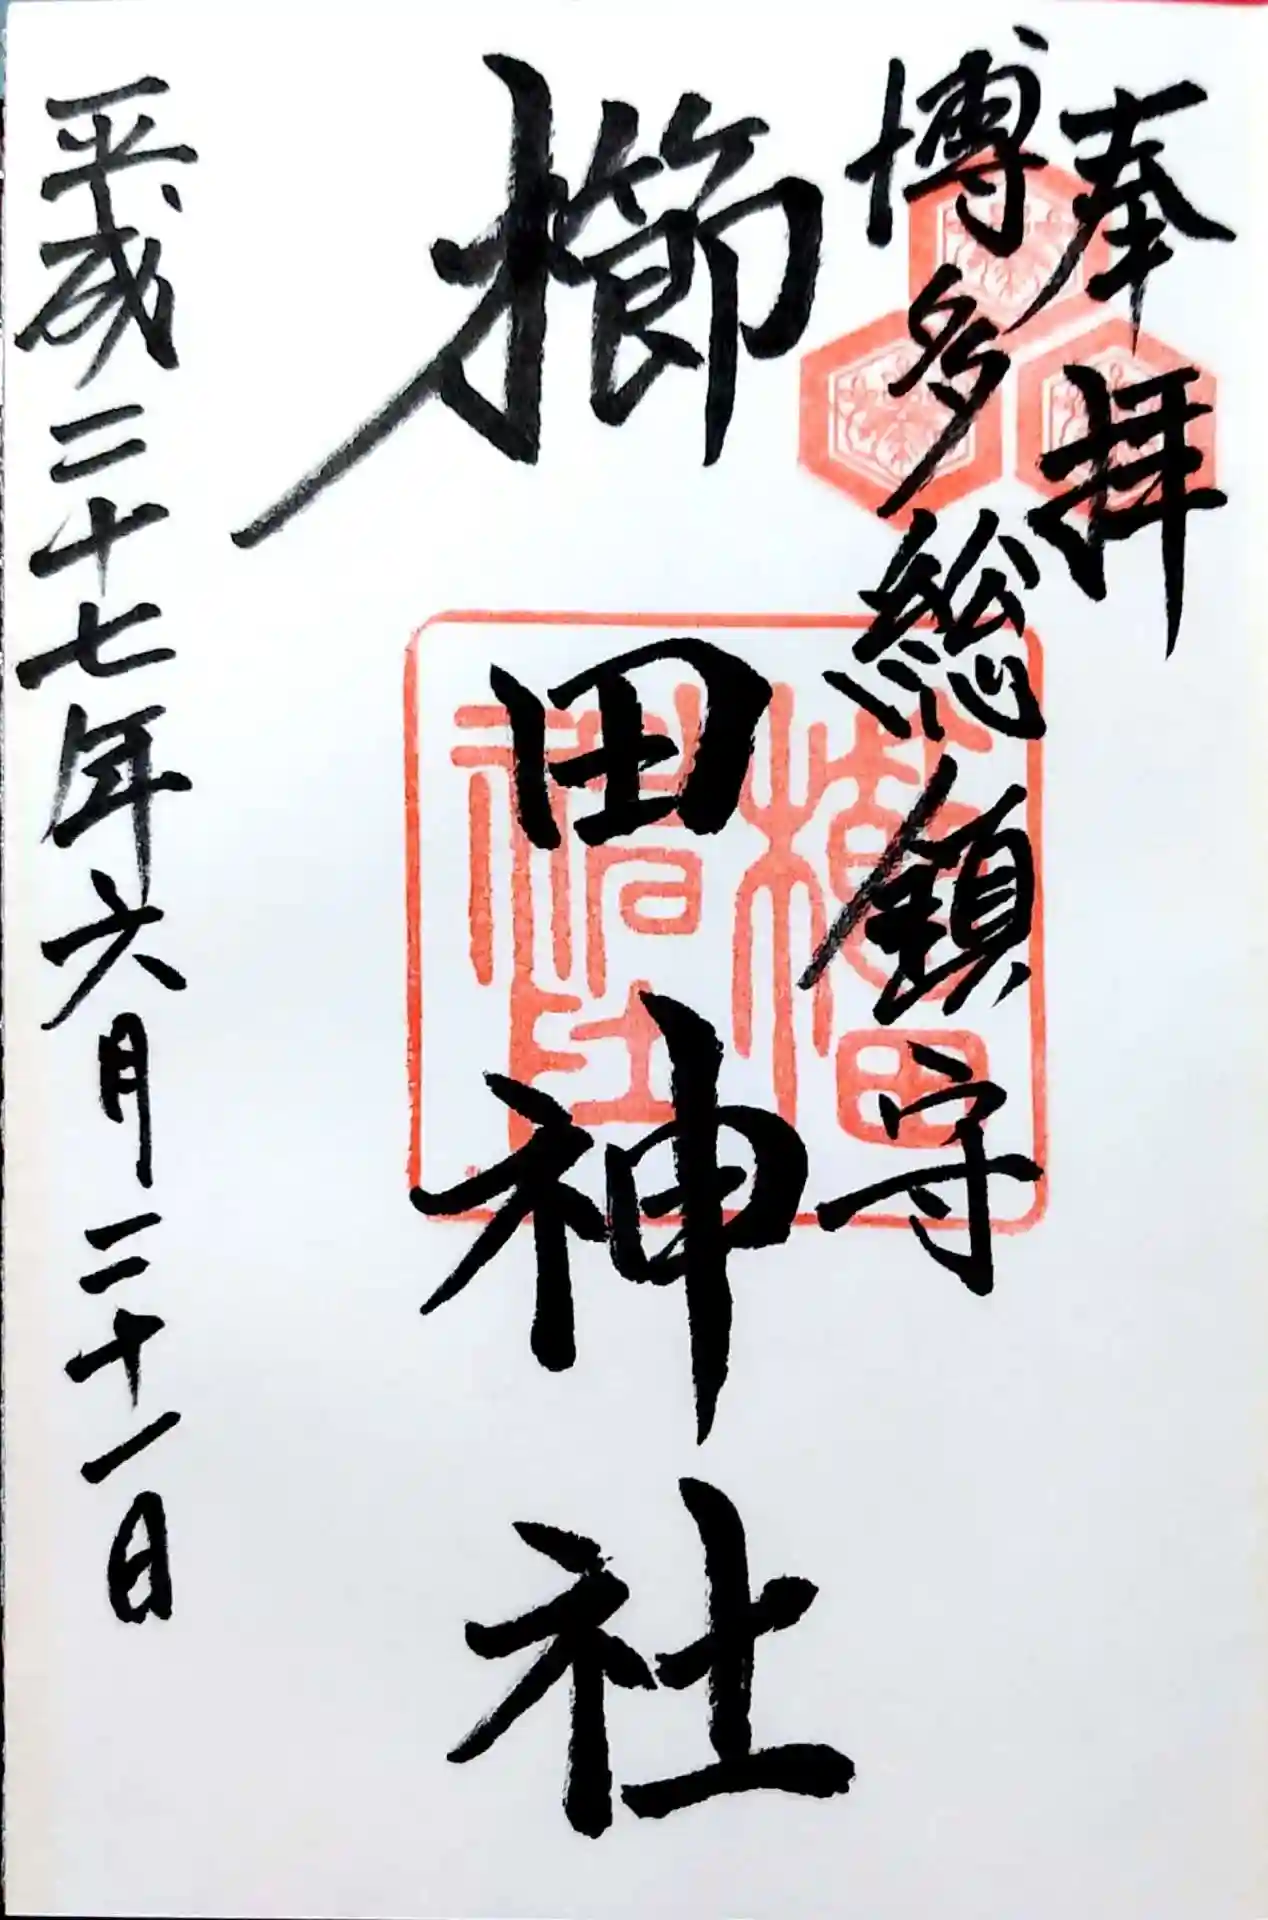 奉拝
博多総鎮守
櫛田神社
平成二十七年六月二十一日
櫛田
神社